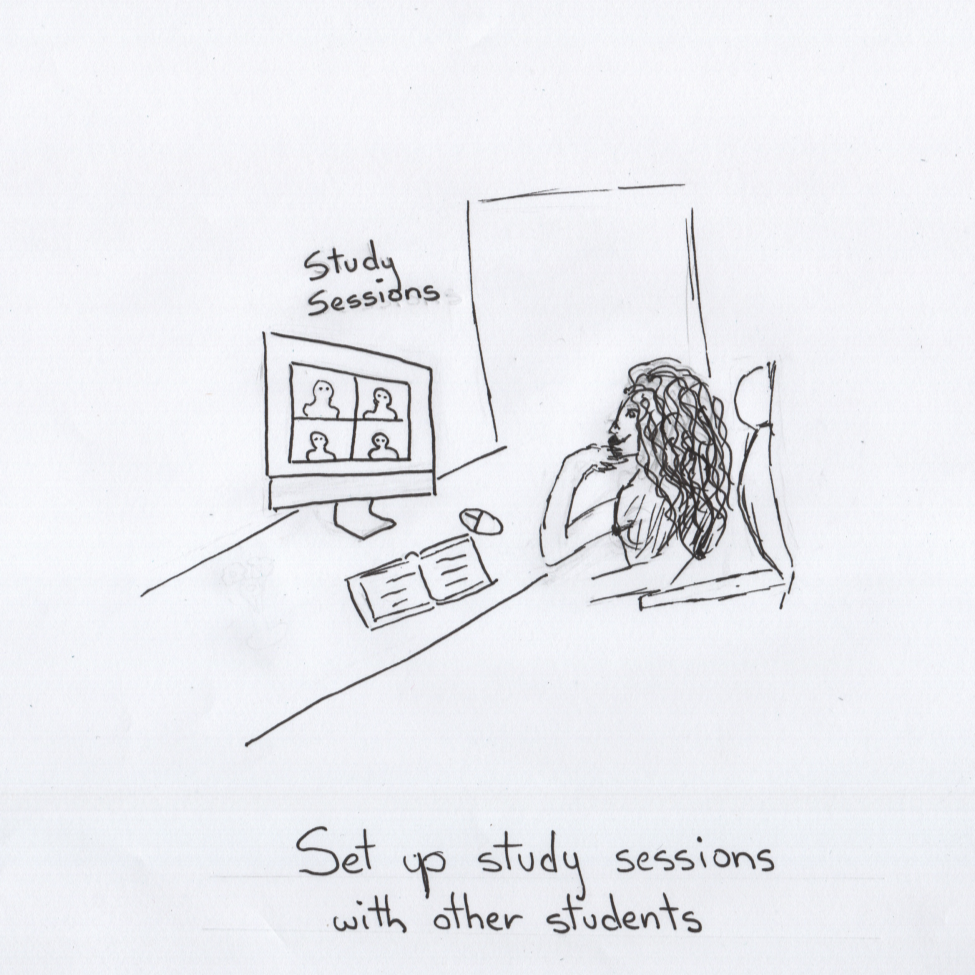 Study
Sessions
Set up study sessions
with other students